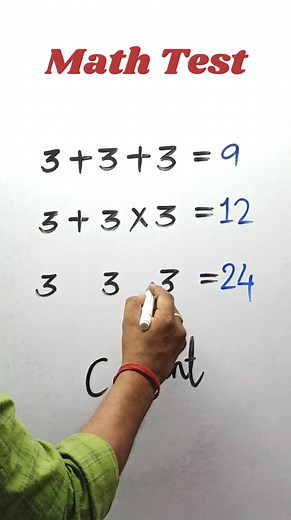 Math Test
3+3+3 = 9
3+3×3 = 12
3 3 3 = 24